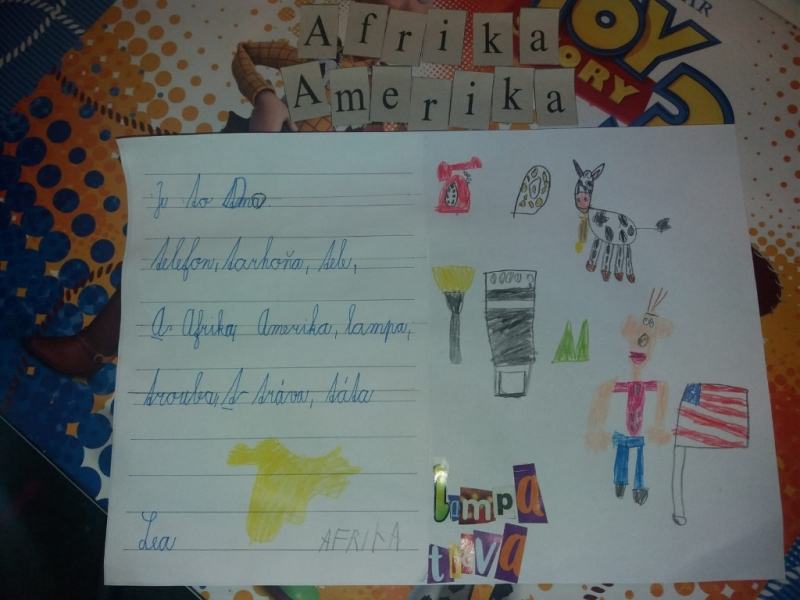 Afrika
Amerika
OY
ORY
Ju to
telefon, tarhoňa, tele,
A- Afrika, Amerika, lampa,
trouba, t- tráva, táta
Lea
AFRIKA
lampa